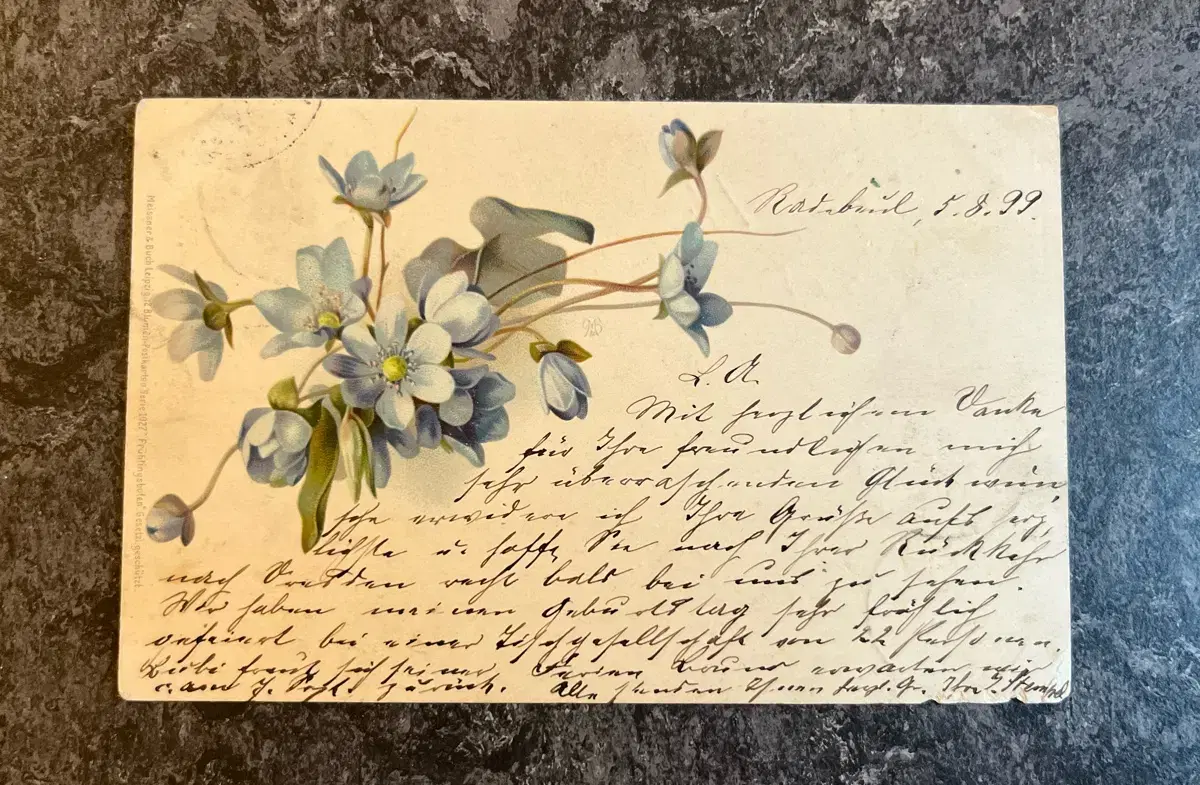 Meissner & Buch Leipzig. 12 Blumenpostkarten Serie 1027 "Frühlingsboten" Gesetzl. geschützt.
M&B
Radebeul, 5.8.99.
L. A.
Mit herzlichem Danke
für Ihre freundlichen mich
sehr überraschenden Glückwün
sche erwidere ich Ihre Grüße aufs herz
lichste u. hoffe Sie nach Ihrer Rückkehr
nach Dresden recht bald bei uns zu sehen.
Wir haben meinen Geburtstag sehr fröhlich
gefeiert bei einer Tischgesellschaft von 22 Personen.
freut sich seiner Ferien Bruno erwarten wir
am 7. Sept. zurück. Alle senden Ihnen herzl. Gr. Ihre